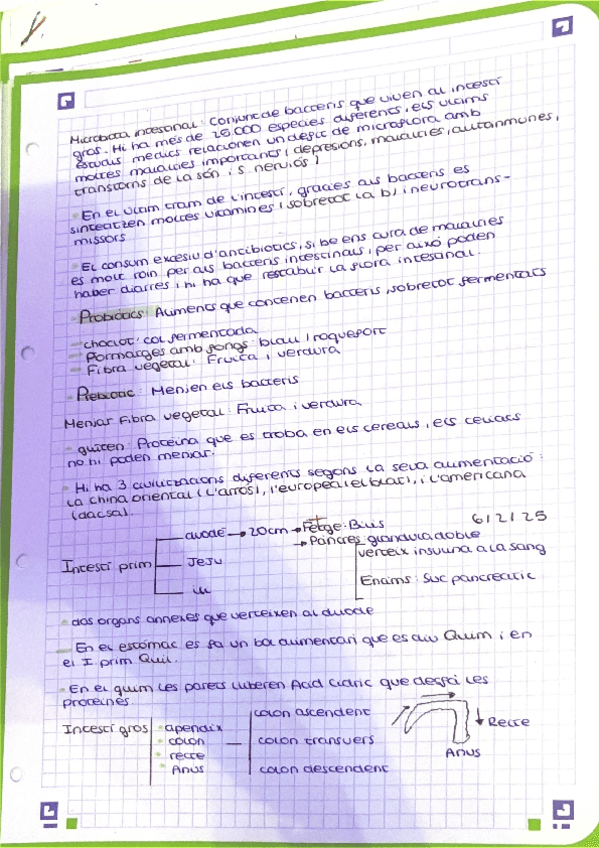 Microbiota intestinal: Conjunt de bacteris que viuen al intestí
gros. Hi ha més de 25000 especies diferents, els ultims
estudis medics relacionen un desfic de microflora amb
moltes malalties importants (depresions, malalties, autanmunes,
transtorns de la són i s. nerviós)
En el ultim tram de l'intestí, gracies als bacteris es
sintetitzen moltes vitamines (sobretot la b) i neurotrans-
missors
El consum excesiu d'antibiotics, si be ens cura de malalties
es molt roin per als bacteris intestinals, per aixó poden
haber diarres i hi ha que restablir la flora intestinal.
Probiótics: Aliments que contenen bacteris, sobretot fermentats
choclot: col fermentada
Formatges amb fongs: blau / roquefort
Fibra vegetal: Fruita i verdura
Prebiotic: Menjen els bacteris
Menjar Fibra vegetal: Fruita i verdura
gluten: Proteina que es troba en els cereals, els celiacs
no hi poden menjar.
Hi ha 3 civilitzacions diferents segons la seva alimentació:
La china oriental (L'arros), l'europea (el blat), i l'americana
(dacsa).
6/2/25
duodé → 20cm → Fetge: Bilis
→ Pancres glandula doble
verteix insulina a la sang
Intestí prim Jeju
Enzims: Suc pancreatic
ili
dos organs annexes que verteixen al duode
En el estómac es fa un bol alimentari que es diu Quim i en
el I. prim Quil.
En el quim les parets lliberen Acid cloric que desfà les
proteines.
colon ascendent
Intestí gros apendix Recte
colon colon transvers
recte Anus
Anus colon descendent